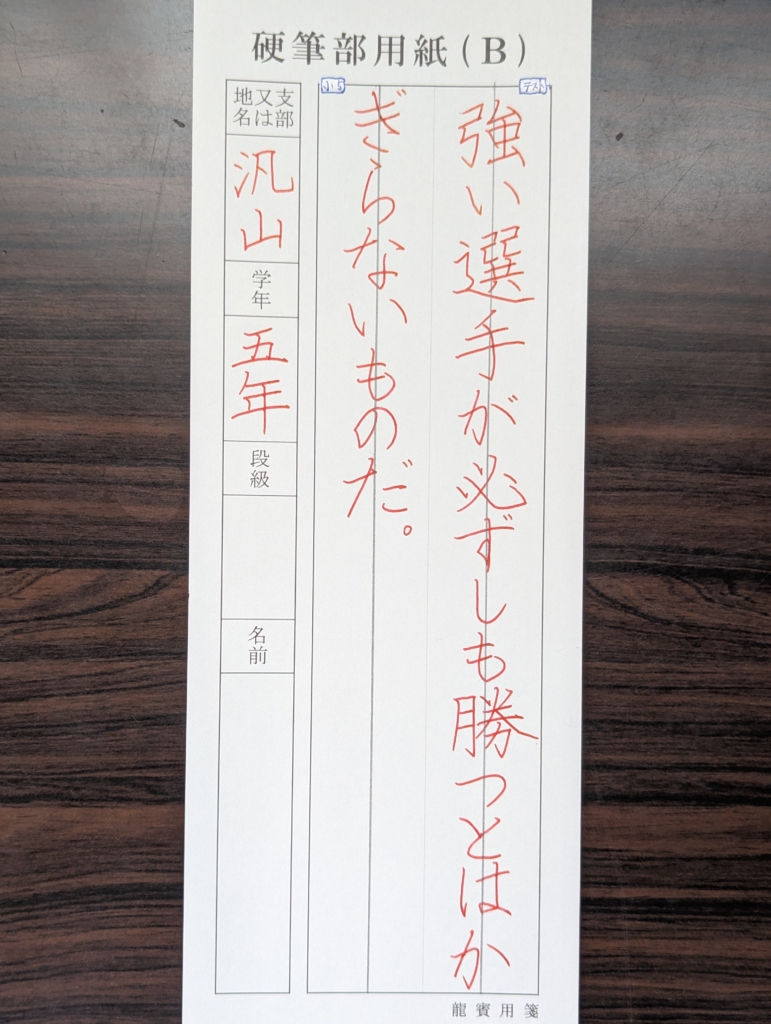 硬筆部用紙(B)
テスト
小5
強い選手が必ずしも勝つとはか
ぎらないものだ。
支部
又は
地名
汎山
学年
五年
段級
名前
龍賓用箋